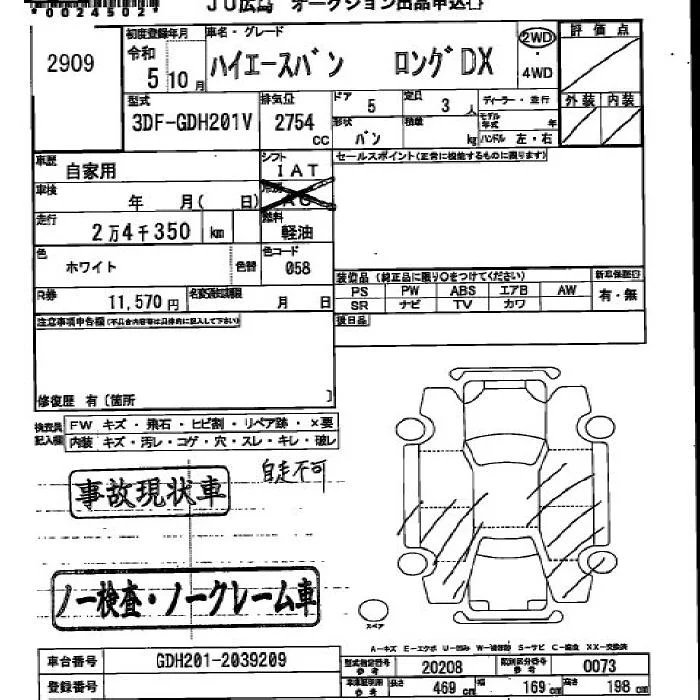 *00245021*
JU広島 オークション出品申込
2909
初度登録年月 車名・グレード 評価点
令和 5 10月 ハイエースバン ロングDX 2WD ・ 4WD
外装 内装
型式 排気量 ドア 5 定員 3 人 ディーラー・並行
3DF-GDH201V 2754 cc 形状 バン 積載 kg モデル年式 年
ハンドル 左・右
車歴 自家用 シフト IAT セールスポイント(正常に機能するものに限ります)
車検 年 月( 日) 冷房 AC
走行 2万4千350 km 燃料 軽油
色 ホワイト 色替 色コード 058
装備品 (純正品に限り○をつけてください) 新車保証書
PS PW ABS エアB AW 有・無
SR ナビ TV カワ
R券 11,570円 名変期限 月 日
後日品
注意事項申告欄(不具合内容等は具体的に記入して下さい)
修復歴 有(箇所 )
検査員記入欄 FW キズ・飛石・ヒビ割・リペア跡・×要
内装 キズ・汚レ・コゲ・穴・スレ・キレ・破レ
自走不可
事故現状車
ノー検査・ノークレーム車
スペア
A-キズ E-エクボ U-凹み W-補修跡 S-サビ C-腐食 XX-交換済
車台番号 GDH201-2039209
型式指定番号 参考 20208 類別区分番号 参考 0073
登録番号
車検証明用 参考 長さ 469cm 幅 169cm 高さ 198cm